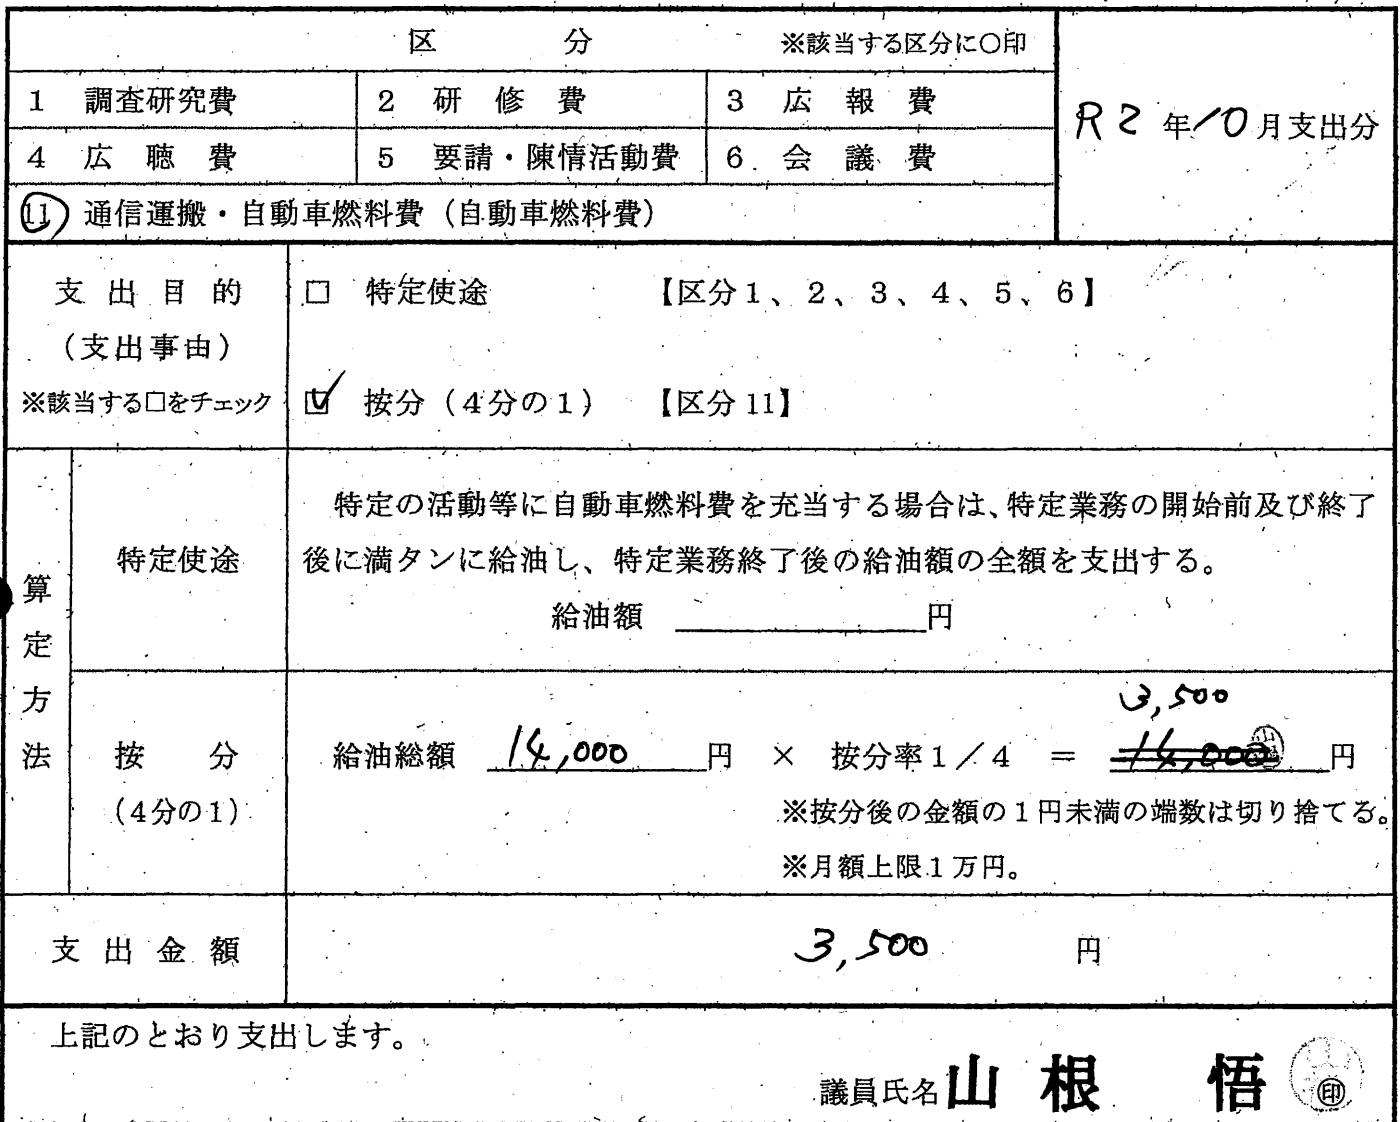 区　　　分　　　※該当する区分に○印
1　調査研究費　2　研修費　3　広報費
R2年10月支出分
4　広聴費　5　要請・陳情活動費　6　会議費
11　通信運搬・自動車燃料費（自動車燃料費）
支出目的
（支出事由）
※該当する□をチェック
□　特定使途　【区分1、2、3、4、5、6】
☑　按分（4分の1）　【区分11】
算定方法
特定使途
特定の活動等に自動車燃料費を充当する場合は、特定業務の開始前及び終了
後に満タンに給油し、特定業務終了後の給油額の全額を支出する。
給油額　　　　円
按　分
（4分の1）
3,500
給油総額　14,000　円　×　按分率1／4　＝　14,000　円
※按分後の金額の1円未満の端数は切り捨てる。
※月額上限1万円。
支出金額　3,500　円
上記のとおり支出します。
議員氏名　山根　悟　㊞